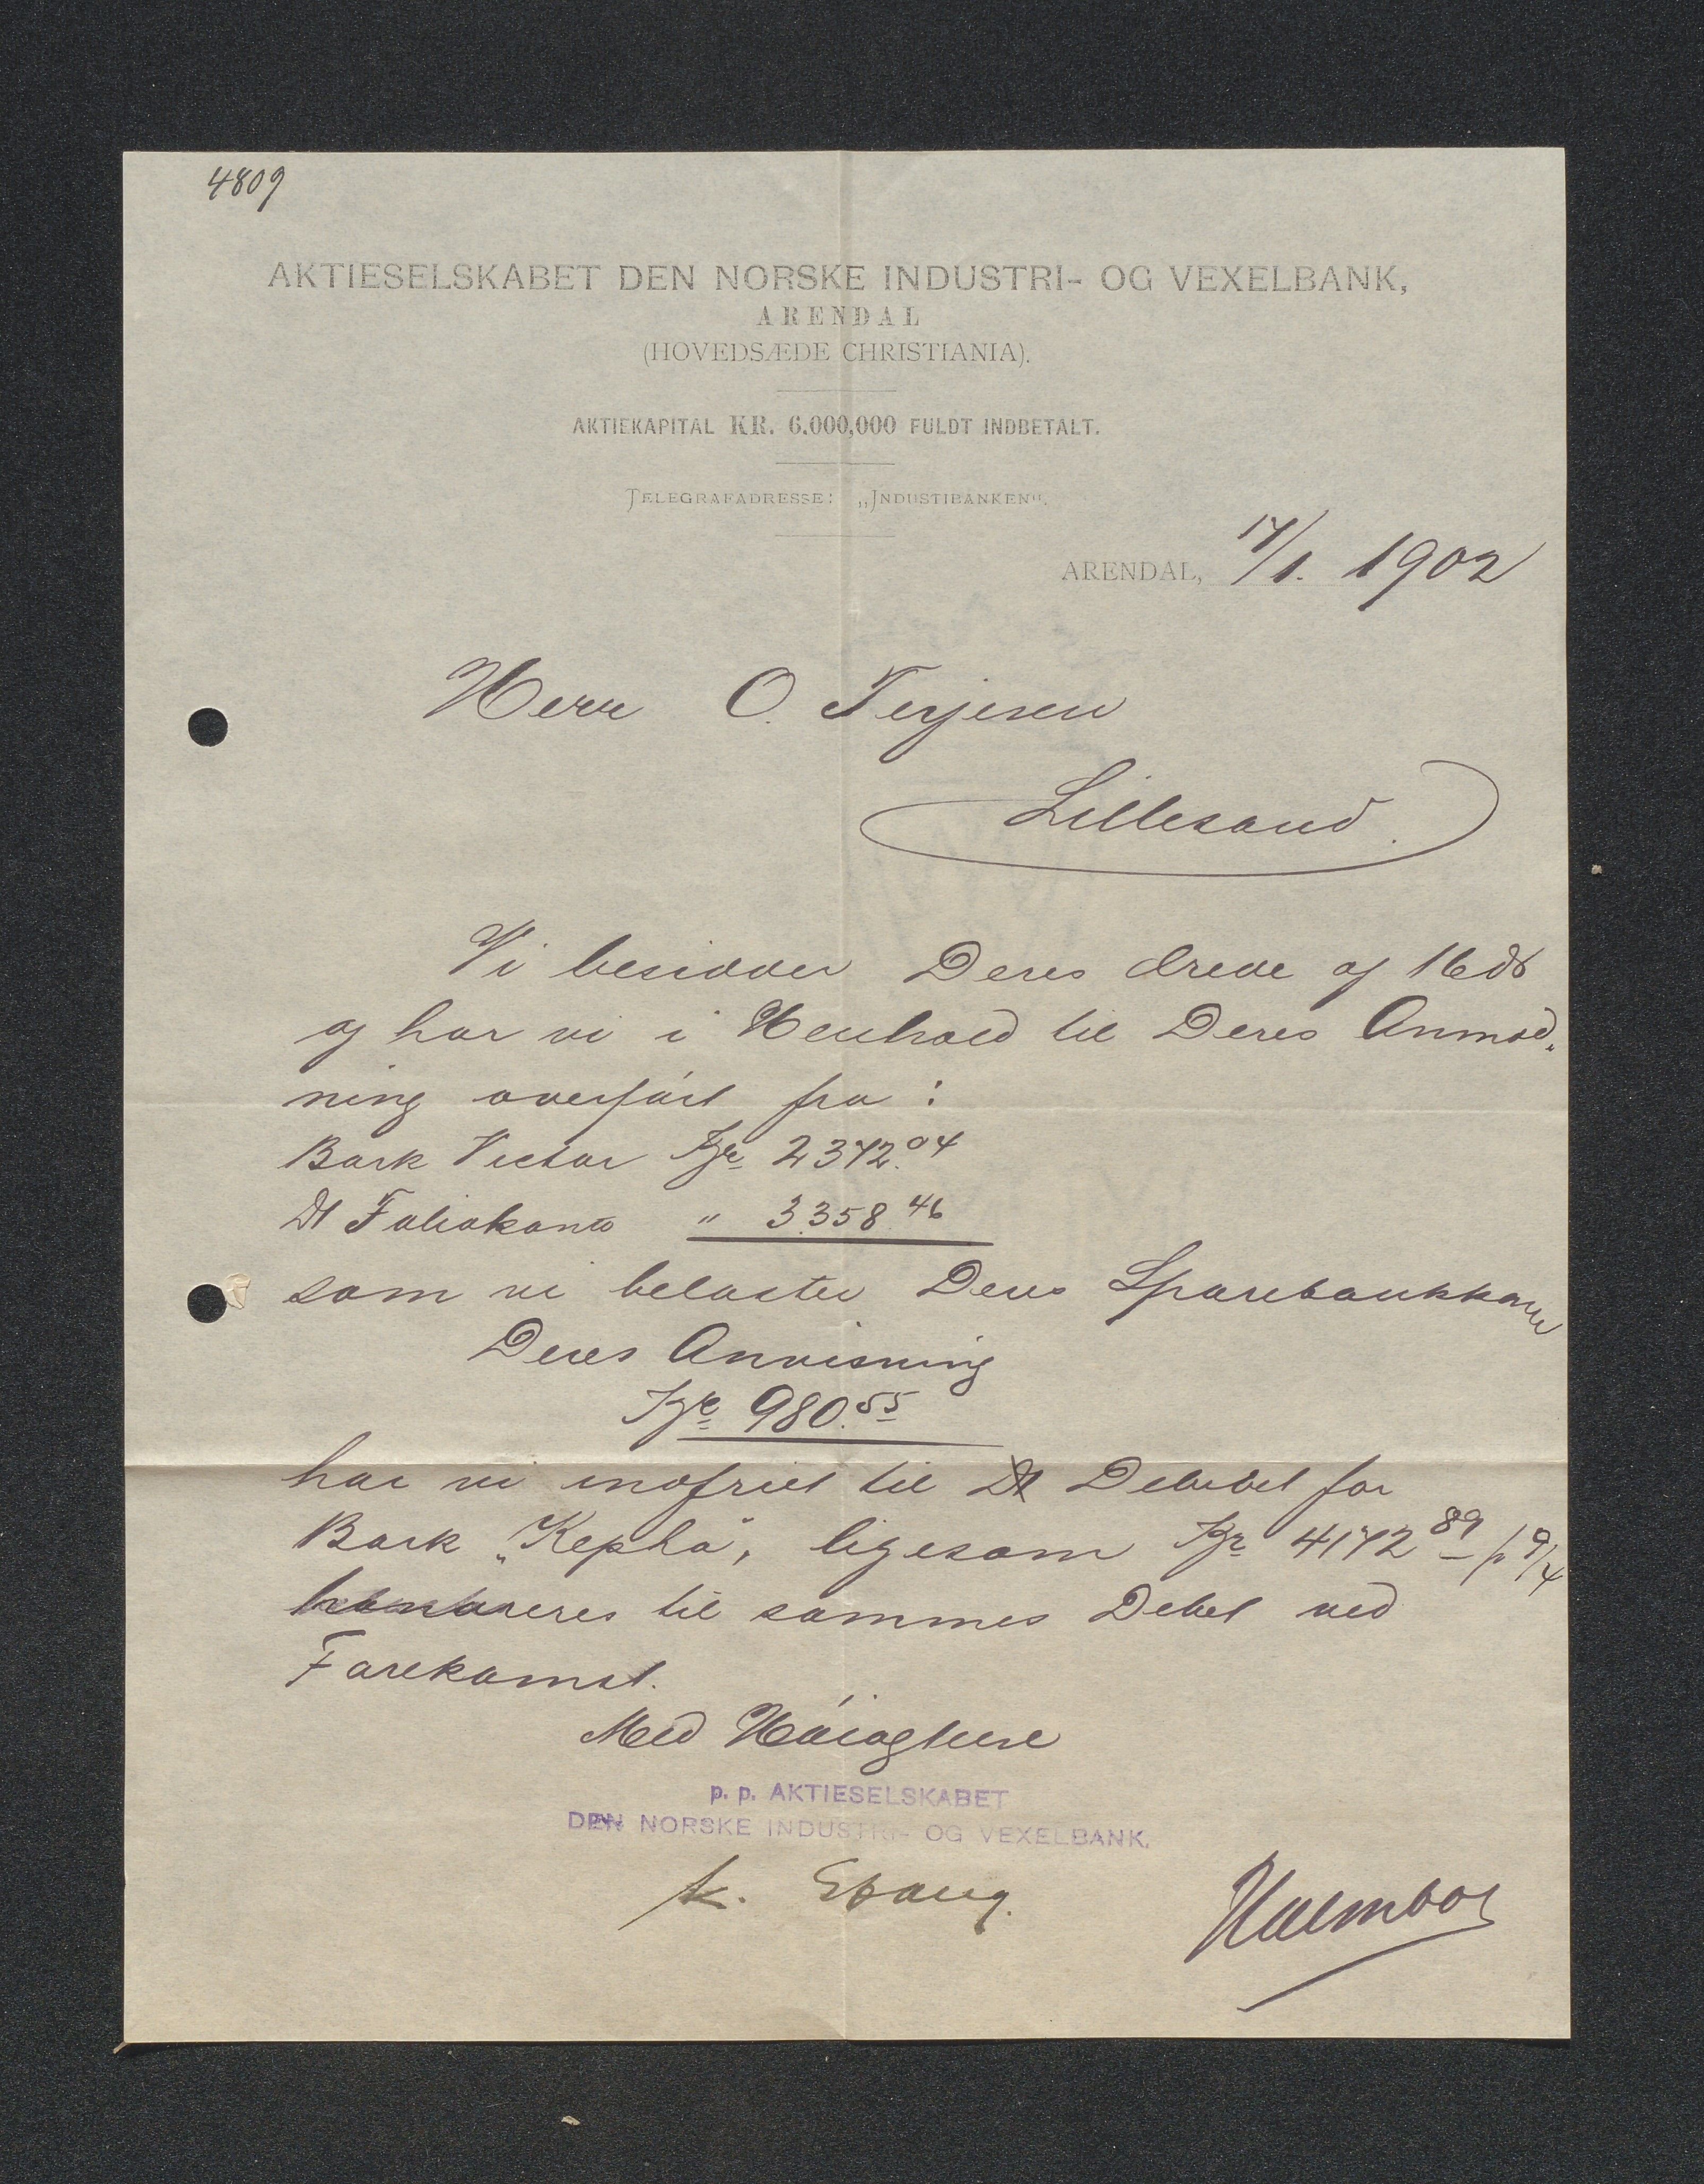 4809
AKTIESELSKABET DEN NORSKE INDUSTRI- OG VEXELBANK,
ARENDAL
(HOVEDSÆDE CHRISTIANIA).
AKTIEKAPITAL KR. 6.000,000 FULDT INDBETALT.
TELEGRAFADRESSE: „INDUSTIBANKEN".
ARENDAL, 17/1. 1902
Herr O. Terjesen
Lillesand.
Vi besidder Deres ærede af 16ds
og har vi i Henhold til Deres Anmod„
ning overført fra:
Bark Victor Kr 2372.04
Dt Foliokonto " 3.358.46
som vi belaster Deres Sparebankkonto
Deres Anvisning
Kr 980.55
har vi indfriet til Debet for
Bark „Kepha", ligesom Kr 4172 89 p 9/4
honoreres til sammes Debet ved
Forekomst.
Med Høiagtelse
p. p. AKTIESELSKABET
DEN NORSKE INDUSTRI- OG VEXELBANK.